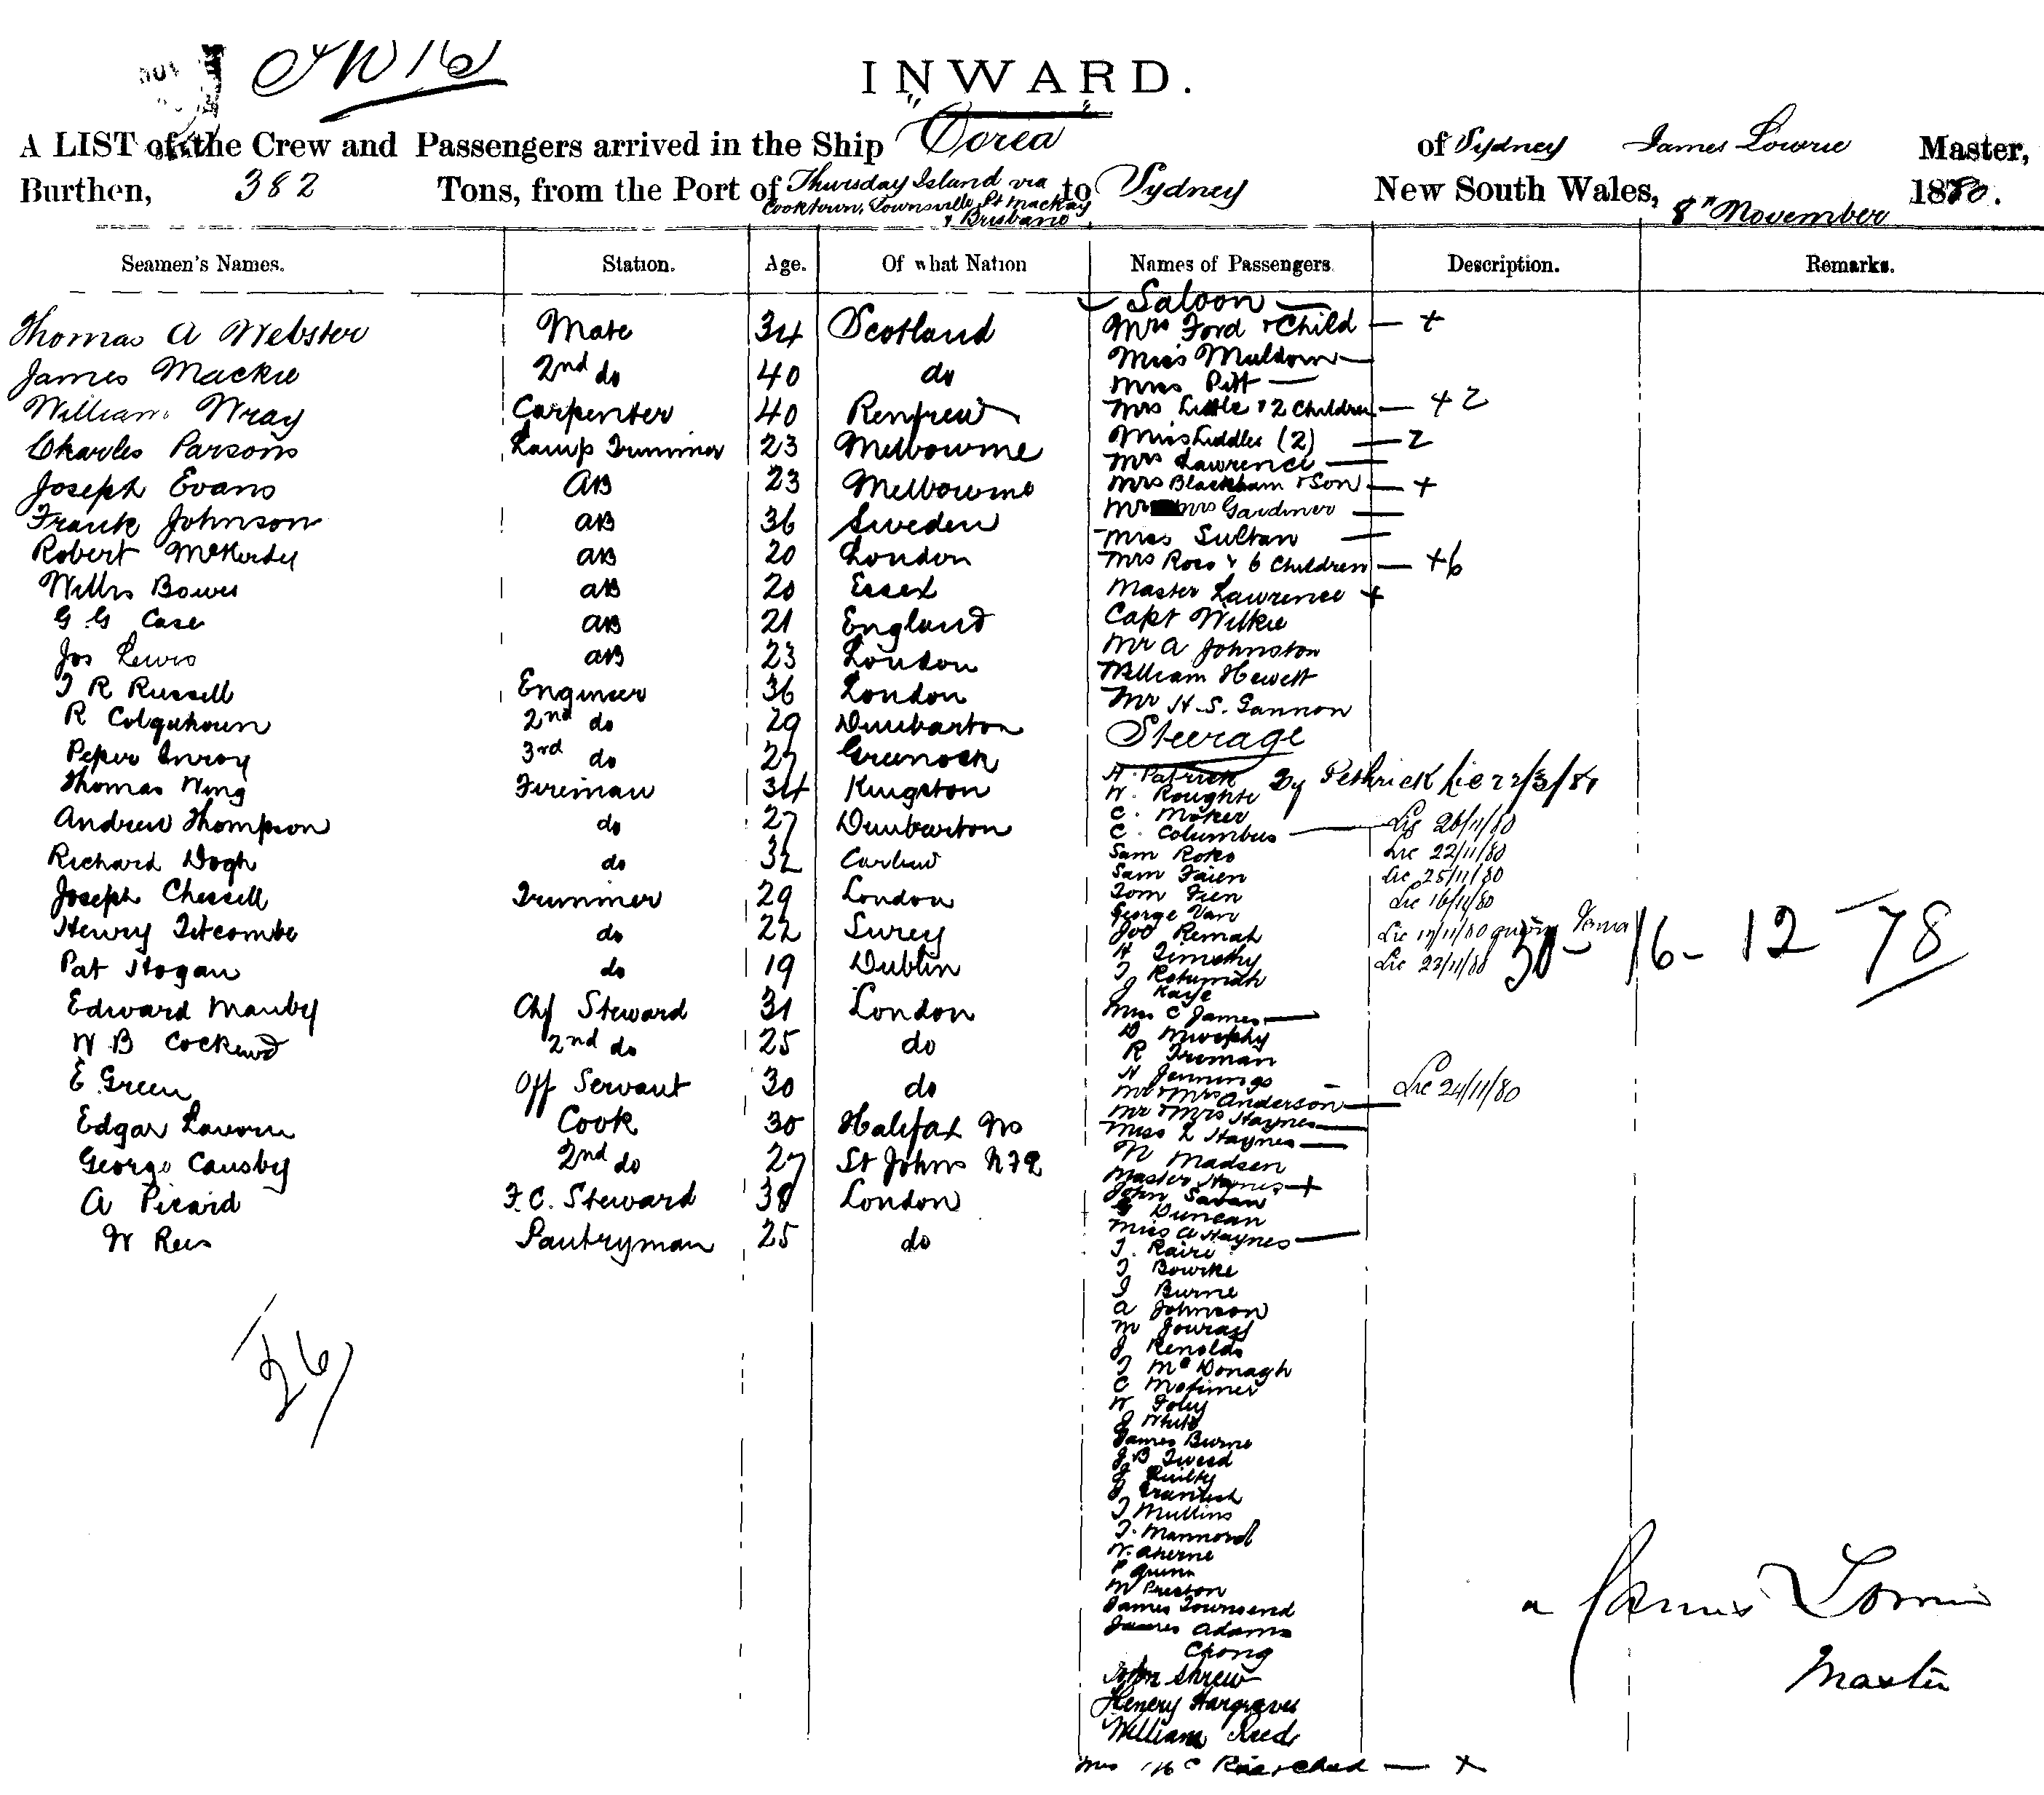 INWARD.
A LIST of the Crew and Passengers arrived in the Ship "Corea" of Sydney James Lowrie Master,
Burthen, 382 Tons, from the Port of Thursday Island via Cooktown, Townsville, Pt Mackay & Brisbane to Sydney New South Wales, 8th November 1880.
Seamen's Names. Station. Age. Of what Nation Names of Passengers. Description. Remarks.
Thomas A Webster Mate 34 Scotland
James Mackie 2nd do 40 do
William Wray Carpenter 40 Renfrew
Charles Parsons Lamp Trimmer 23 Melbourne
Joseph Evans AB 23 Melbourne
Frank Johnson AB 36 Sweden
Robert McKerdy AB 20 London
Willm Bowes AB 20 Essex
G G Case AB 21 England
Jos Lewis AB 23 London
T R Russell Engineer 36 London
R Colquhoun 2nd do 29 Dumbarton
Peper Inroy 3rd do 27 Greenock
Thomas Wing Fireman 34 Kingston
Andrew Thompson do 27 Dumbarton
Richard Dogh do 32 Carlow
Joseph Chessell Trimmer 29 London
Henry Titcombe do 22 Surey
Pat Hogan do 19 Dublin
Edward Manby Chf Steward 31 London
W B 2nd do 25 do
E Green Off Servant 30 do
Edgar Cook 30 Halifax NS
George Causby 2nd do 27 St Johns
A Picard F.C. Steward 38 London
W Rees Pantryman 25 do
26
Saloon
Mrs Ford & Child — +
Miss Muldoon —
Miss Pitt —
Mrs Little & 2 Children — + 2
Miss Liddles (2) — 2
Mrs Lawrence —
Mrs Blackham & Son — +
Mr Mrs Gardiner —
Miss Sultan —
Mrs Ross & 6 Children — +6
Master Lawrence +
Capt Wilkie
Mr A Johnston
William Hewett
Mr H. S. Gannon
Steerage
H. Patrick By Pethrick lic 22/3/81
W. Roughte
C. Moker
C. Columbus — Lic 26/11/80
Sam Roko Lic 22/11/80
Sam Faien Lic 25/11/80
Tom Fien Lic 16/11/80
George Van
Joo Remah Lic 17/11/80
H Timothy Lic 23/11/80
T Rotumah
J Kaye
30 - 16 - 12 78
Mrs C James —
D Murphy
R Freeman
H Jennings
Mr & Mrs Anderson — Lic 24/11/80
Mr & Mrs Haynes —
Miss L Haynes —
N Madsen
Master Haynes +
John Savan
G Duncan
Miss A Haynes —
T. Raire
T Bourke
J Burne
A Johnson
M
J Renolds
T McDonagh
C Motimer
W Foley
J White
James Burne
J B Tweed
J Quilty
J
T Mullins
T. Mannord
W. Aherne
P Quinn
M Preston
James Townsend
James Adams
Chong
John Shrew
Henery Hargraves
William Reed
Mrs Child — +
James Lowrie
Master